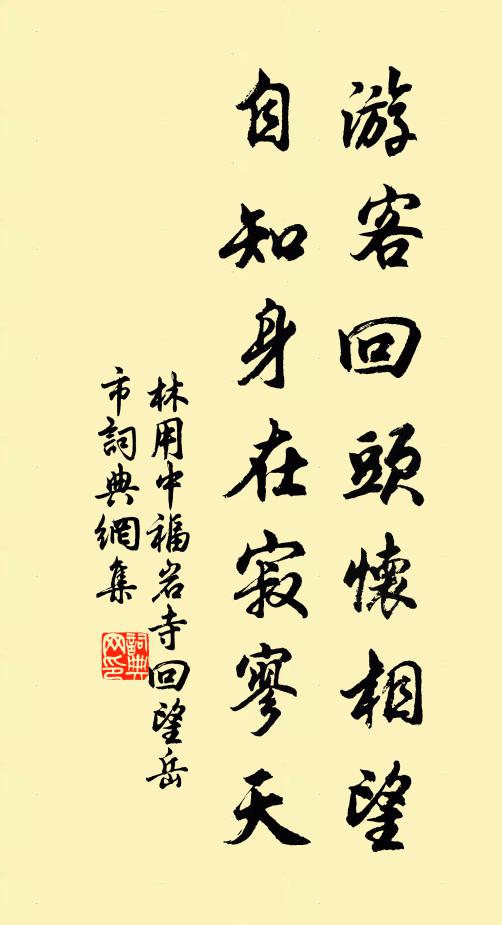 游客回頭懷相望
自知身在寂寥天
林用中福岩寺回望岳
市詞典網集
詞典
网印